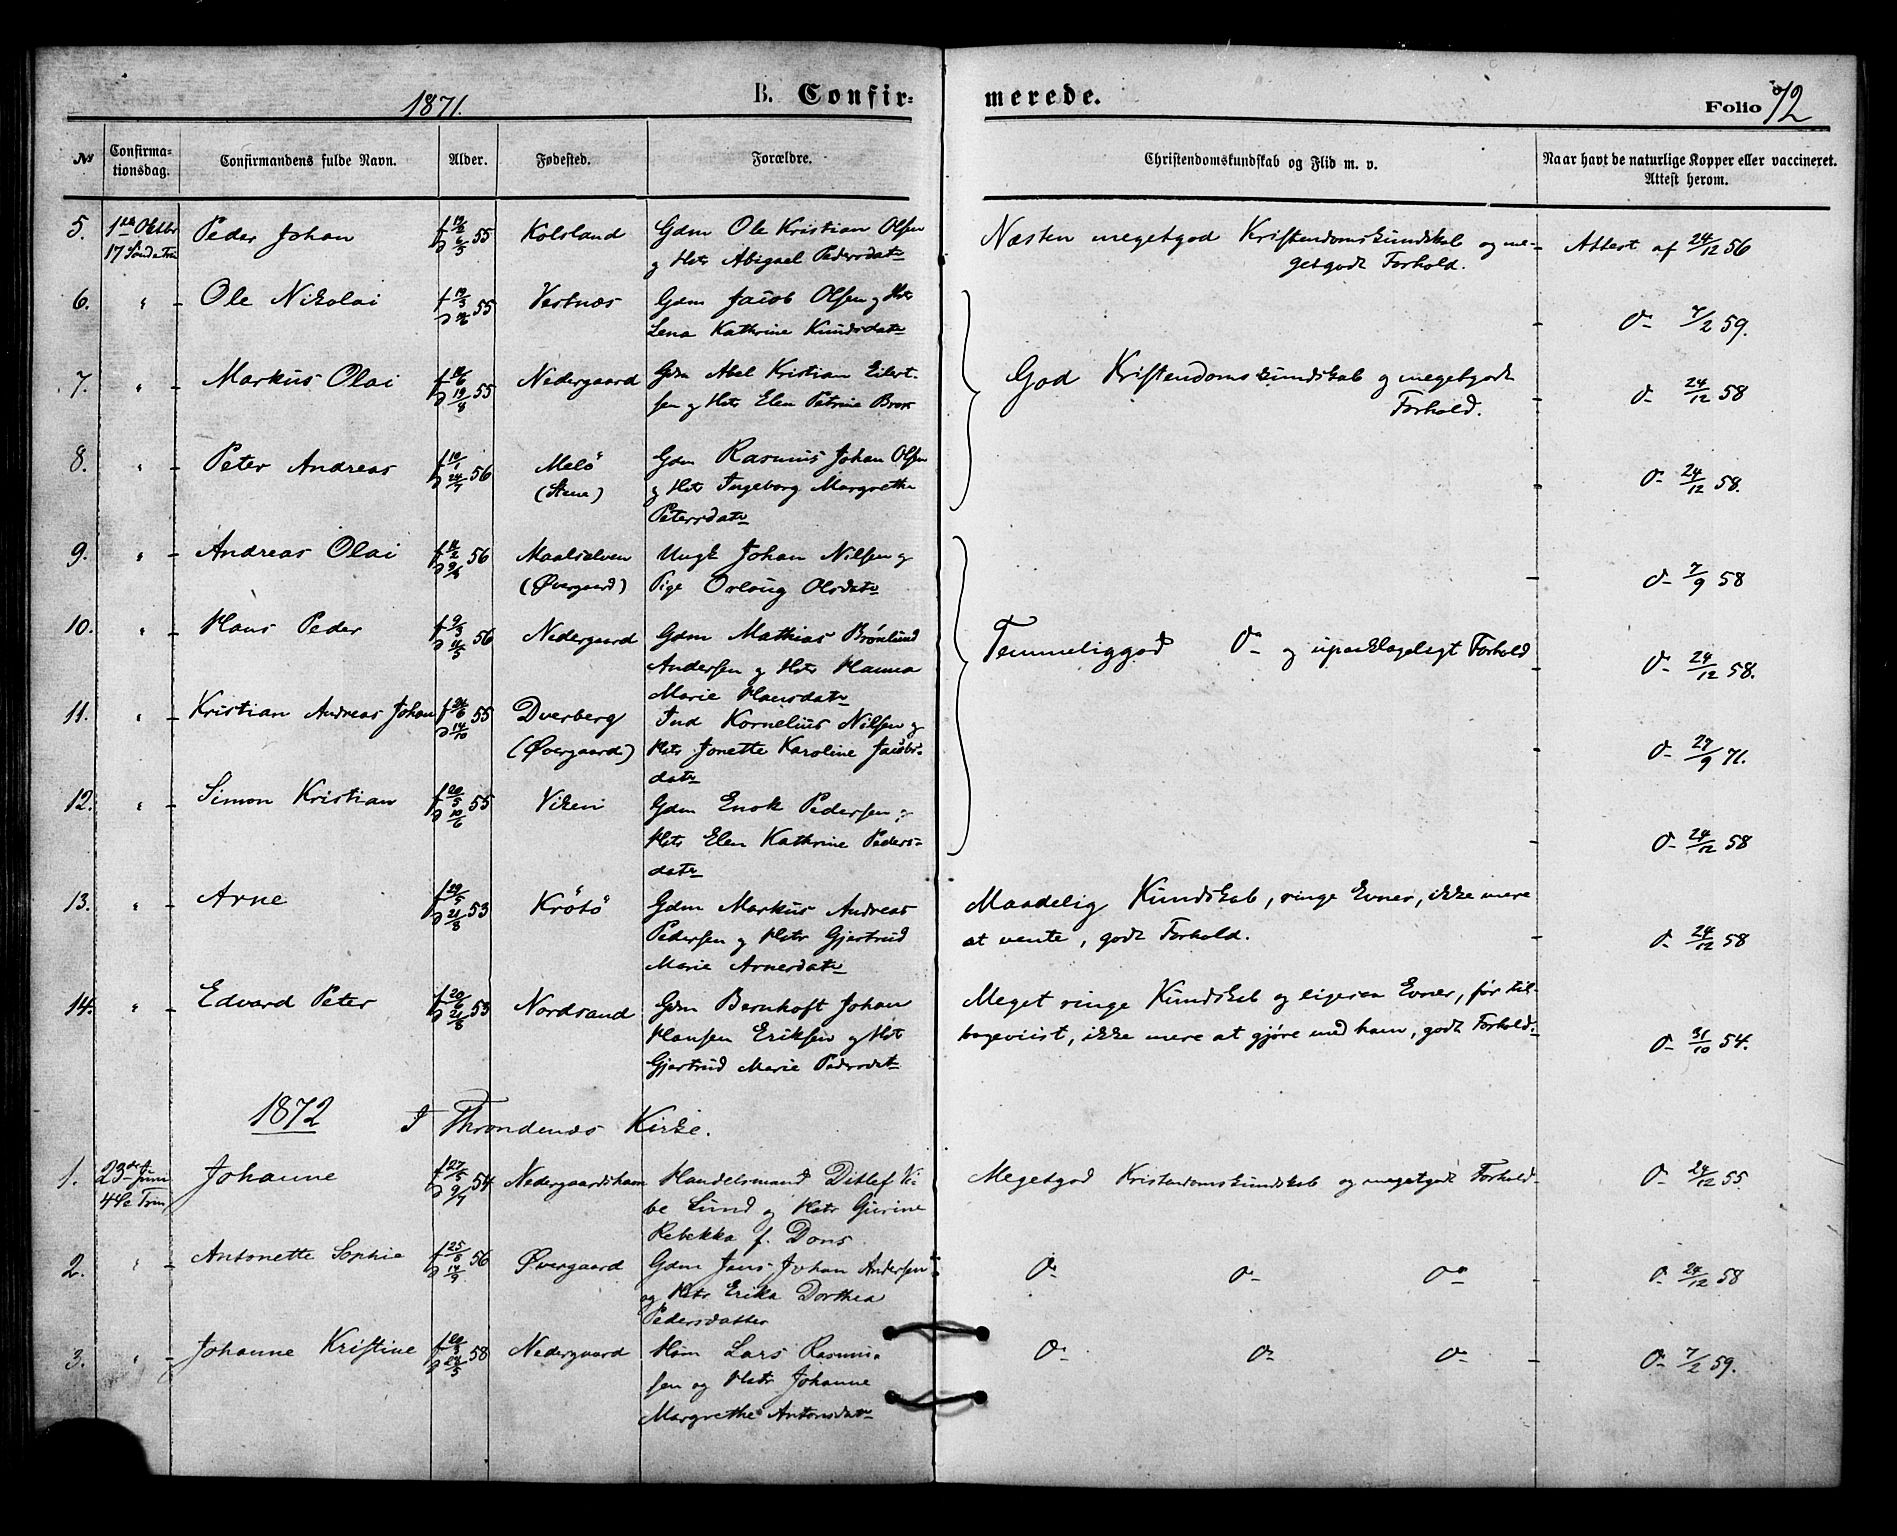 1871.
B. Confir-
merede.
Folio 72
No
Confirma-
tionsdag.
Confirmandens fulde Navn.
Alder.
Fødested.
Forældre.
Christendomskundskab og Flid m. v.
Naar havt de naturlige Kopper eller vaccineret.
Attest herom.
5. 1ste Oktbr Peder Johan f 19/2 55 Kolsland Gdm Ole Kristian Olsen Næsten megetgod Kristendomskundskab og me- Attest af 24/12 56
17 Sønd a Trin og Hstr Abigael Pedersdatr getgodt Forhold.
6. " Ole Nikolai f 19/3 55 Vestnæs Gdm Jacob Olsen og Hstr
Lena Kathrine Knudsdatr D- 7/2 59.
7. " Markus Olai 55 Nedergaard Gdm Abel Kristian Eilert- God Kristendomskundskab og megetgodt
D 19/8 sen og Hstr Elen Petrine Brox Forhold. D- 24/12 58
8. " Peter Andreas f 10/1 56 Melö Gdm Rasmus Johan Olsen
(Aune) og Hstr Ingeborg Margrethe D- 24/12 58.
Petersdatr
9. " Andreas Olai 56 Maalselven Ungk Johan Nilsen og
(Øvergaard) Pige Orloug Olsdatr D- 7/9 58
10. " Hans Peder f 9/3 56 Nedergaard Gdm Mathias Brönlund Temmeliggod D- og upaaklageligt Forhold
Andersen og Hstr Hanna D- 24/12 58.
Marie Hansdatr
11. " Kristian Andreas Johan 55 Dverberg Ind Kornelius Nilsen og
D 14/10 (Øvergaard) Hstr Jonette Karoline Jacobs-
datr D- 27/9 71.
12. " Simon Kristian f 20/5 55 Viken Gdm Enok Pedersen og
D 10/6 Hstr Elen Kathrine Peders- D- 24/12 58
datr
13. " Arne f 29/5 53 Krötö Gdm Markus Andreas Maadelig Kundskab, ringe Evner, ikke mere
D 21/8 Pedersen og Hstr Gjertrud at vente, godt Forhold. D- 24/12 58
Marie Arnesdatr
14. " Edvard Peter f 20/6 53 Nordsand Gdm Bernhoft Johan Meget ringe Kundskab og ligesaa Evner, før til-
D 21/8 Hansen Eriksen og Hst bageviist, ikke mere at gjöre med ham, godt Forhold. D- 31/10 54.
Gjertrud Marie Pedersdat
1872 I Throndenæs Kirke.
1. 23de Juni Johanne f 27/5 54 Nedergaardshavn Handelsmand Ditlef Vi- Megetgod Kristendomskundskab og megetgodt Forhold D- 24/12 55.
4de Trin, D 9/7 be Lund og Hstr Gurine
Rebekka f. Dons.
2. " Antonette Sophie f 25/8 56 Øvergaard Gdm Jens Johan Andersen D- D- D- D- 24/12 58
D 14/9 og Hstr Erika Dorthea
Pedersdatter
3. " Johanne Kristine 58 Nedergaard Hsm Lars Rasmu- D- D- D- D- 7/2 59.
sen og Hstr Johanne
Margrethe Antonsdatr